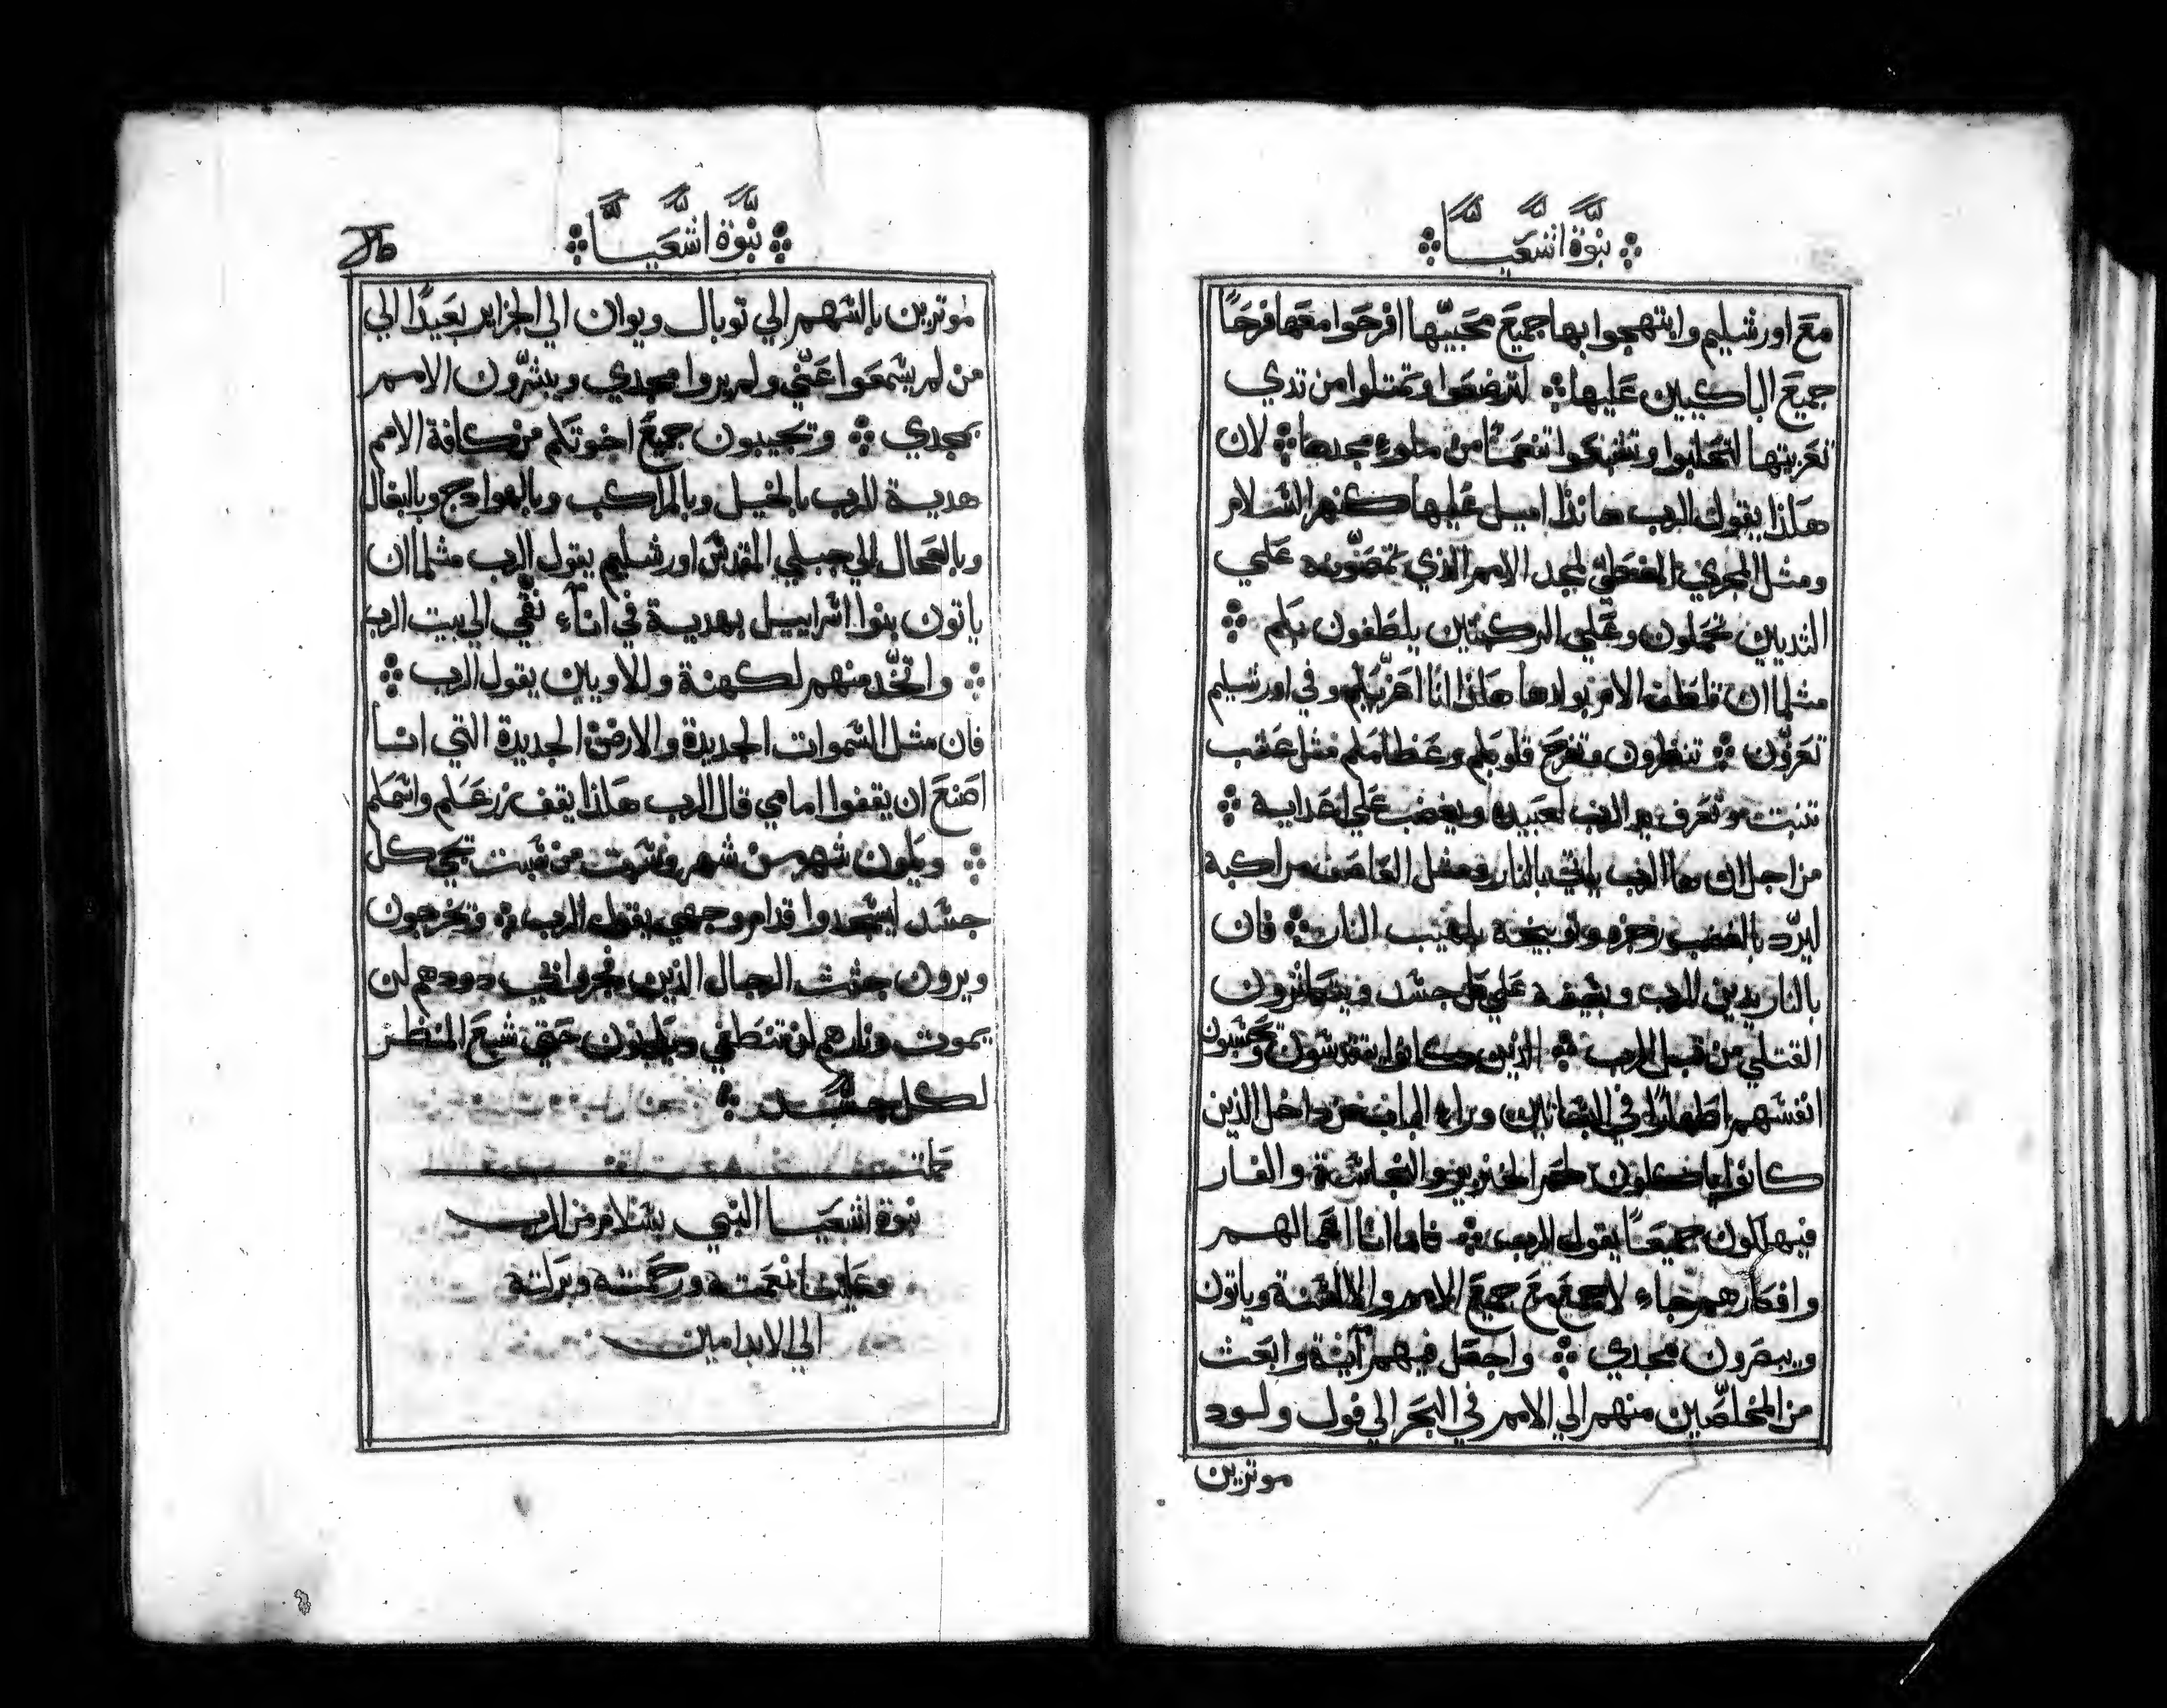 نبوة اشعيا
مع اورشليم وابتهجوا بها جميع محبيها افرحوا معها فرحًا
جميع الباكيين عليها لترضعوا وتمتلوا من تدي
تعزيتها لتحلبوا وتتنعموا تنعمًا من مجدها لان
هكذا يقول الرب هانذا اميل عليها كنهر السلام
ومثل المجري لمجد الامم الذي تمصونه علي
الثديين تحملون وعلي الركبتين يلطفون بكم
مثلما ان تلطف الام بولدها هكذا انا اعزيكم وفي اورشليم
تعزون تنظرون وتفرح قلوبكم وعظامكم مثل عشب
تنبت وتعرف يد الرب لعبيده ويغضب علي اعدايه
من اجل ان ها الرب ياتي بالنار ومثل العاصف مراكبه
ليرد بالغضب رجزه وتوبيخه بلهيب النار فان
بالنار يدين الرب وبسيفه علي كل جسد ويتكاثرون
القتلي من قبل الرب الذين كانوا يتقدسون وتحسبون
انفسهم اطهارًا في البساتين وراء الباب من داخل الذين
كانوا ياكلون لحم الخنزير والنجاسة والفار
فيهلكون جميعًا يقول الرب فاما انا اعمالهم
وافكارهم جاء لاجمع مع جميع الامم والالسنة وياتون
ويبصرون مجدي واجعل فيهم آية وابعث
من المخلصين منهم الي الامم في البحر الي فول ولود
موترين
نبوة اشعيا
موترين بالسهم الي توبال ويوان الي الجزاير بعيدًا الي
من لم يسمعوا عني ولم يروا مجدي ويبشرون الامم
بمجدي وتجيبون جميع اخوتكم من كافة الامم
هدية للرب بالخيل وبالمراكب وبالهوادج وبالبغال
وبالعجال الي جبلي المقدس اورشليم يقول الرب مثلما ان
ياتون بنوا اسراييل بهدية في اناء نقي الي بيت الرب
واتخد منهم لكهنة وللاويين يقول الرب
فان مثل السموات الجديدة والارض الجديدة التي انا
اصنع ان يقفوا امامي قال الرب هكذا يقف زرعكم واسمكم
ويكون شهر من شهر وسبت من سبت تجي كل
جسد ليسجدوا قدام وجهي يقول الرب وتخرجون
ويرون جثث الرجال الذين فجروا في دودهم لن
يموت ونارهم لن تنطفي ويكونون حتي شبع المنظر
لكل جسد
كملت
نبوة اشعيا النبي بسلام من الرب
وعلينا نعمته ورحمته وبركته
الي الابد امين